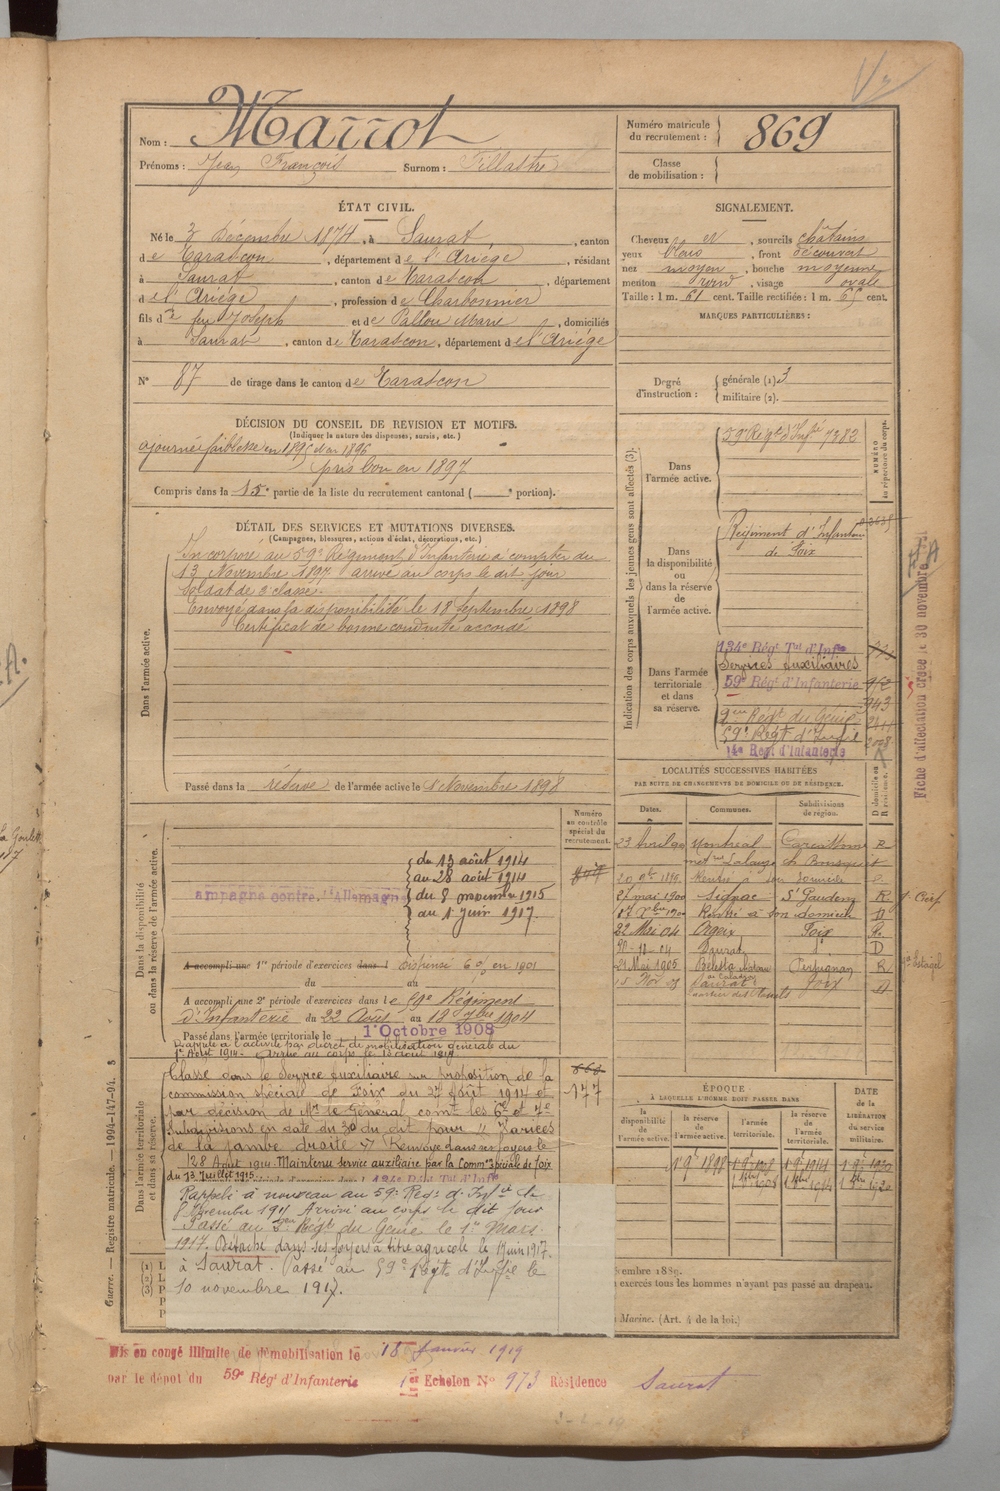 Nom : Marrot
Prénoms : Jean François Surnom : Fillastre
Numéro matricule du recrutement : 869
Classe de mobilisation :
ÉTAT CIVIL.
Né le 3 Décembre 1874, à Saurat, canton
de Tarascon, département de l'Ariège, résidant
à Saurat, canton de Tarascon, département
de l'Ariège, profession de Charbonnier
fils de feu Joseph et de Pallou Marie, domiciliés
à Saurat, canton de Tarascon, département de l'Ariège
N° 87 de tirage dans le canton de Tarascon
SIGNALEMENT.
Cheveux et, sourcils châtains
yeux bleus, front découvert
nez moyen, bouche moyenne
menton rond, visage ovale
Taille : 1 m. 61 cent. Taille rectifiée : 1 m. 65 cent.
MARQUES PARTICULIÈRES :
Degré d'instruction : générale (1) 3
militaire (2).
DÉCISION DU CONSEIL DE REVISION ET MOTIFS.
(Indiquer la nature des dispenses, sursis, etc.)
ajourné faiblesse en 1895 et en 1896
pris bon en 1897
Compris dans la 15e partie de la liste du recrutement cantonal ( e portion).
DÉTAIL DES SERVICES ET MUTATIONS DIVERSES.
(Campagnes, blessures, actions d'éclat, décorations, etc.)
Dans l'armée active.
Incorporé au 59e Régiment d'Infanterie à compter du
13 Novembre 1897 arrivé au corps le dit jour
Soldat de 2e classe.
Envoyé dans la disponibilité le 18 Septembre 1898
Certificat de bonne conduite accordé
Passé dans la réserve de l'armée active le 1 Novembre 1898
Indication des corps auxquels les jeunes gens sont affectés (3).
NUMÉRO au répertoire du corps.
Dans l'armée active.
59e Régt d'Infie 7382
Dans la disponibilité ou dans la réserve de l'armée active.
Régiment d'Infanterie
de Foix
Dans l'armée territoriale et dans sa réserve.
134e Régt Tal d'Infie
Services Auxiliaires
59e Régt d'Infanterie
943
2me Régt du Génie
59e Régt d'Infie
14e Régt d'Infanterie
Fiche d'affectation créée le 30 novembre
LOCALITÉS SUCCESSIVES HABITÉES
PAR SUITE DE CHANGEMENTS DE DOMICILE OU DE RÉSIDENCE.
Dates. Communes. Subdivisions de région. D domicile ou R résidence.
23 Avril 90 Montréal Carcassonne R
Rentré à son domicile
21 mai 1900 Signac St Gaudens R
Rentré à son domicile D
22 Mai 04 Orgeix Foix R
Saurat D
21 Mai 1905 Bélesta Perpignan R
15 Nov Saurat Foix D
Dans la disponibilité ou dans la réserve de l'armée active.
Numéro au contrôle spécial du recrutement.
Campagne contre l'Allemagne
du 13 août 1914
au 28 août 1914
du 8 novembre 1915
au 1 Juin 1917.
A accompli une 1re période d'exercices dans l Dispensé en 1901
du au
A accompli une 2e période d'exercices dans le 59e Régiment
d'Infanterie du 22 Août au 18 7bre 1904
Passé dans l'armée territoriale le 1 Octobre 1908
Rappelé à l'activité par décret de mobilisation générale du
1er Août 1914. Arrivé au corps le 13 août 1914
Dans l'armée territoriale et dans sa réserve.
Classé dans le Service auxiliaire sur proposition de la 177
commission spéciale de Foix du 27 Août 1914 et
par décision de Mr le Général comt les 6e et 7e
subdivisions en date du 30 du dit pour « Varices
de la jambe droite » Renvoyé dans ses foyers le
28 Août 1914 Maintenu service auxiliaire par la Common Spéciale de Foix
du 13 Juillet 1915
Rappelé à nouveau au 59e Régt d'Infie le
8 Novembre 1915 Arrivé au corps le dit jour
Passé au 2me Régt du Génie le 1er Mars
1917. Détaché dans ses foyers à titre agricole le 1 Juin 1917.
à Saurat. Passé au 59e Régt d'Infie le
10 novembre 1917.
ÉPOQUE
À LAQUELLE L'HOMME DOIT PASSER DANS
la disponibilité de l'armée active. la réserve de l'armée active. l'armée territoriale. la réserve de l'armée territoriale.
DATE de la LIBÉRATION du service militaire.
1 9e 1898
embre 1889.
exercés tous les hommes n'ayant pas passé au drapeau.
Marine. (Art. 4 de la loi.)
Guerre. — Registre matricule. — 1994-147-94.
Mis en congé illimité de démobilisation le 18 Janvier 1919
par le dépôt du 59e Régt d'Infanterie Echelon N° 973 Résidence Saurat